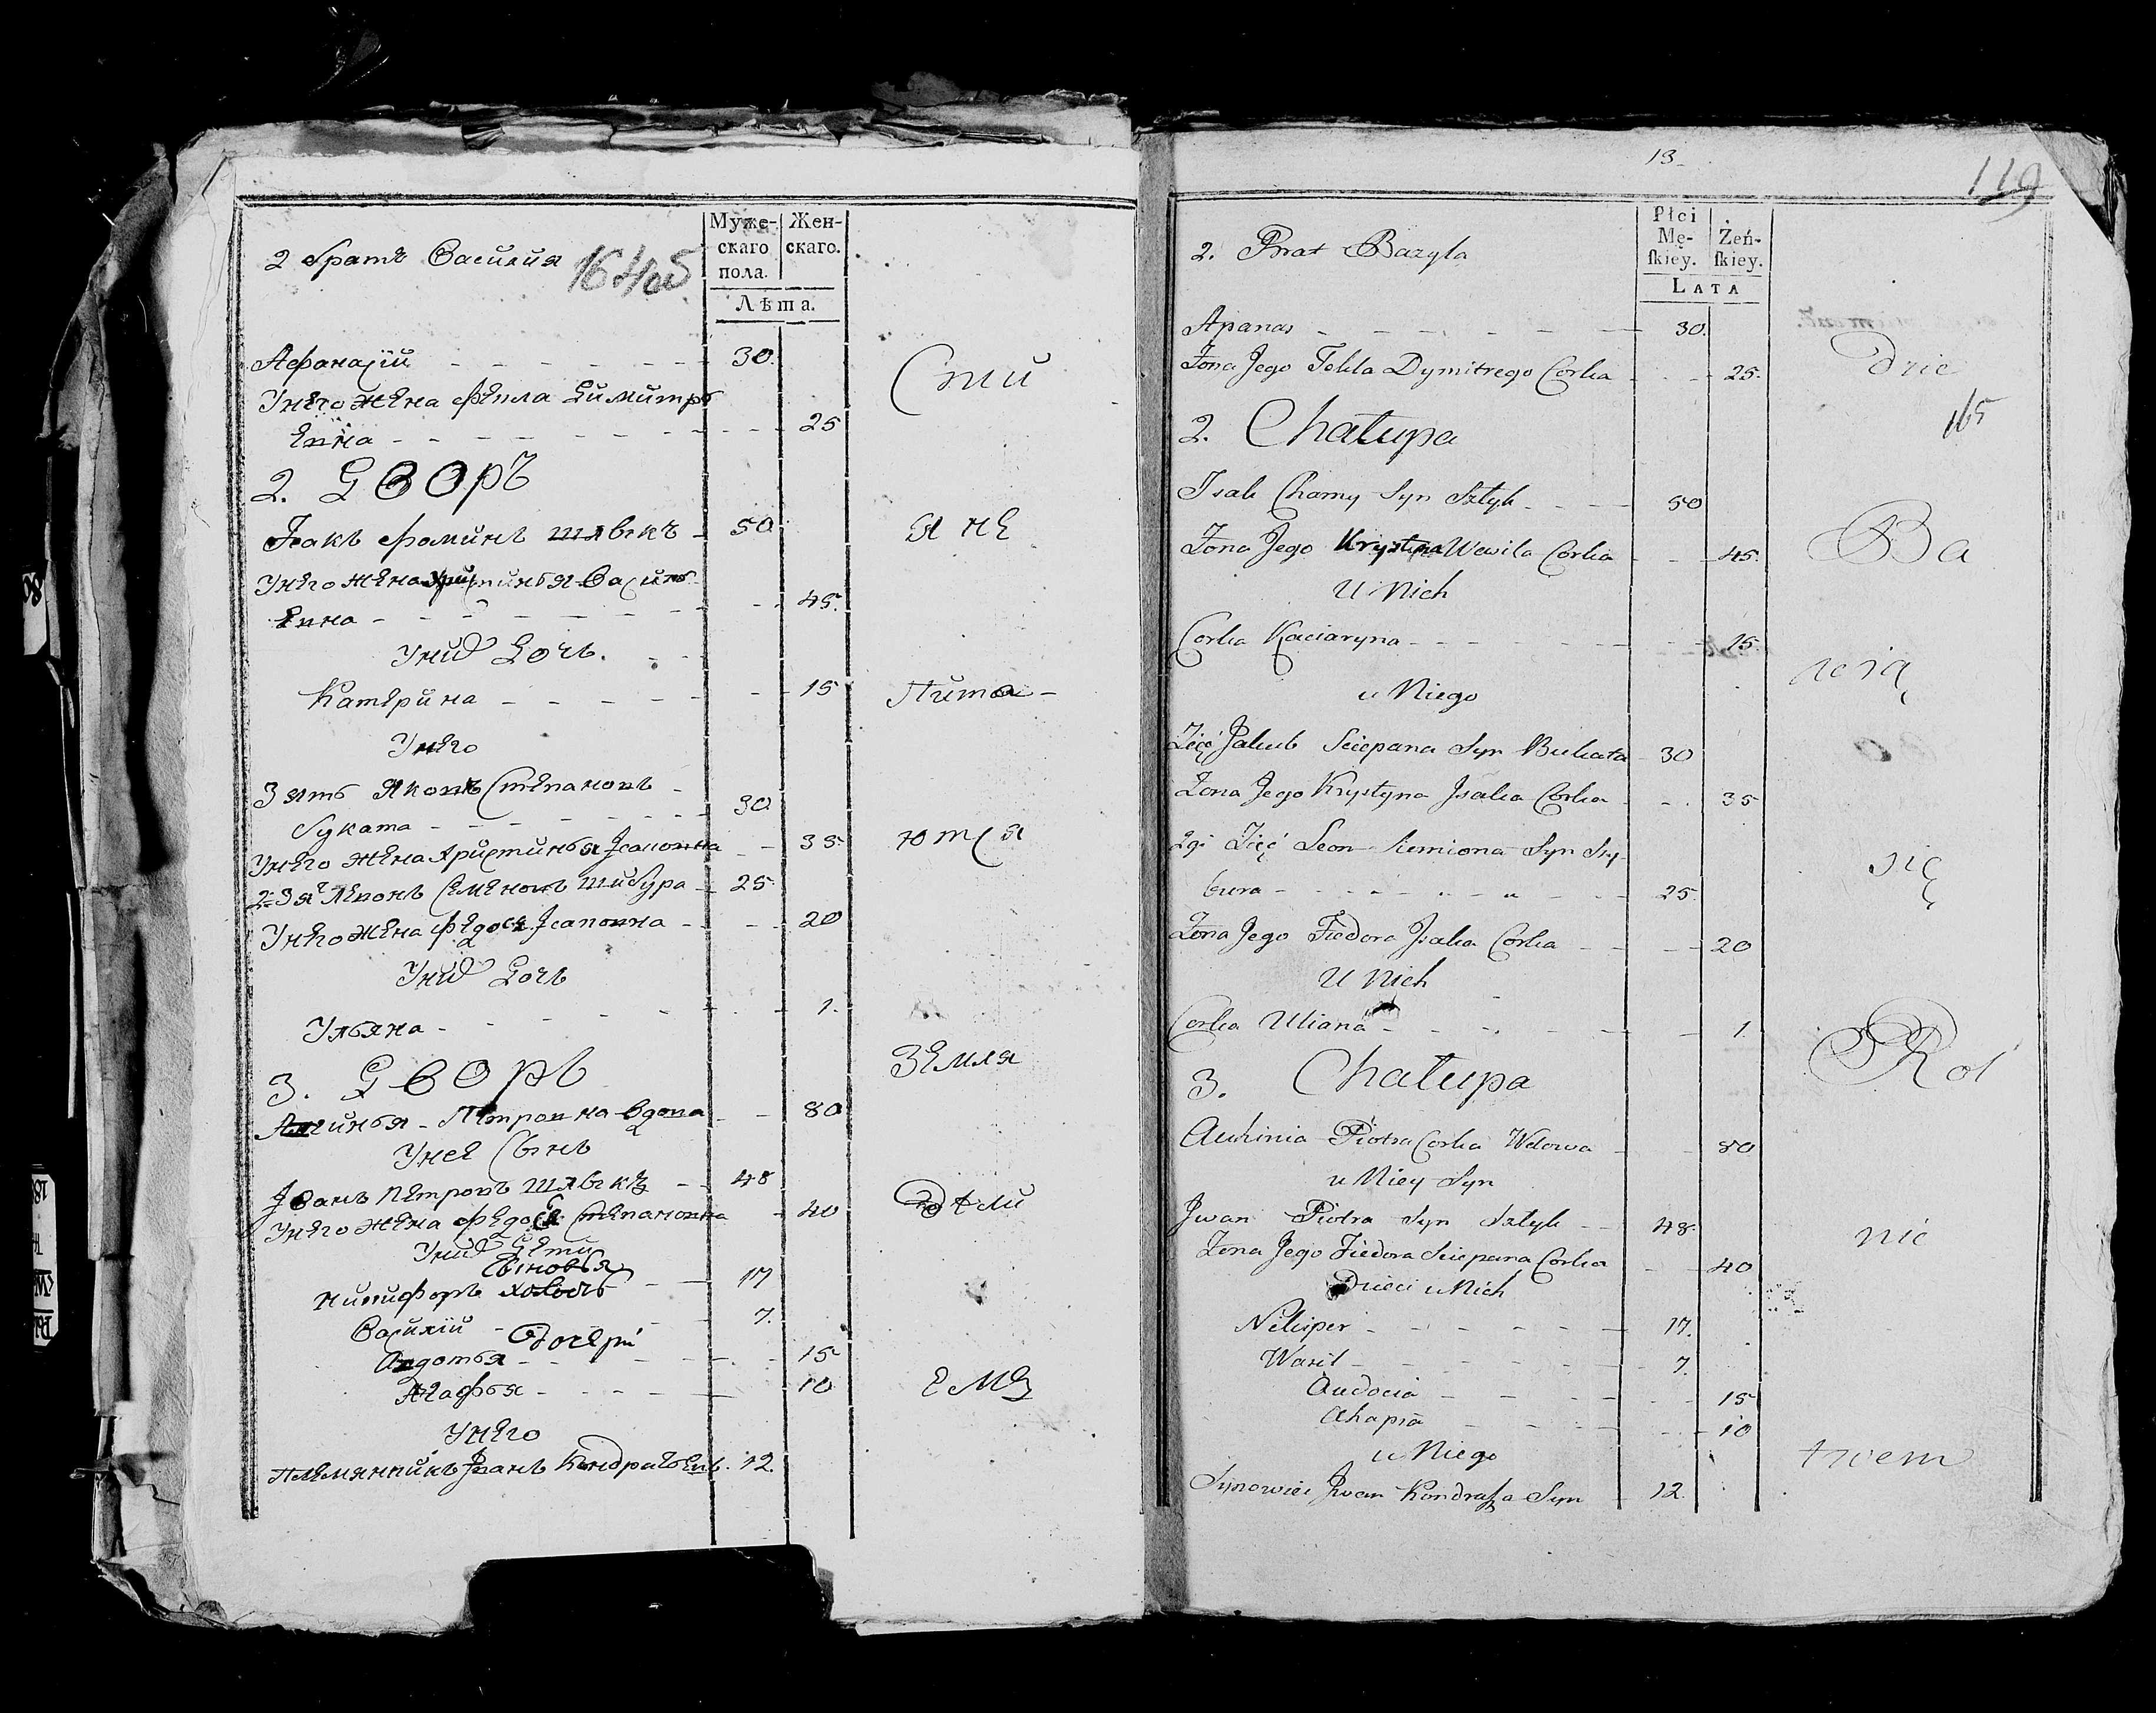 Муже-
скаго
пола.
Жен-
скаго.
Лѣта.
2 братъ Василия
164об
Афанасiй 30.
Унего жена Фекла Димитрь
евна 25
2. Дворъ
Исакъ Фоминъ Шлыкъ 50
Унего жена Христинья Василь
евна 45.
Унихъ Дочь.
Катерина 15
Унего
Зять Яковъ Степановъ
Буката 30
Унего жена Христинья Исаковна 35
2й Зять Левонъ Семеновъ Шибура 25
Унего жена Федося Исаковна 20
Унихъ Дочь
Ульяна 1.
3. Дворъ
Петровна вдова 80
Унее Сынъ
Иванъ Петровъ Шлыкъ 48
Унего жена Федося Степановна 40
Унихъ Дети
Сыновья
Никифоръ 17
Василiй 7.
Дочери
Авдотья 15
Агафья 10
Унего
Племянникъ Иванъ Кондратьевъ 12.
Сии
я не
Пита-
ются
Земля
дели
емъ
13
119
Płci
Mę-
skiey.
Żeń-
skiey.
LATA
2. Brat Bazyla
Apanas 30.
Żona Jego Tekla Dymitrego Corka 25.
2. Chałupa
Isak Chamy Syn Szłyk 50
Żona Jego Krystyna Wasila Corka 45.
U Nich
Corka Kaciaryna 15.
u Niego
Zięć Jakub Sciepana Syn Bukata 30
Żona Jego Krystyna Isaka Corka 35
2gi Zięć Leon Siemiona Syn Szy-
bura 25.
Żona Jego Fiedora Isaka Corka 20
U Nich
Corka Uliana 1.
3. Chałupa
Auhinia Piotra Corka Wdowa 80
u Niey Syn
Jwan Piotra Syn Szłyk 48.
Żona Jego Fiedora Sciepana Corka 40
Dzieci u Nich
Nikiper 17.
Wasil 7.
Audocia 15
Ahapia 10
u Niego
Synowiec Jwan Kondrasza Syn 12.
165
Ba
się
Rol
nic
twem